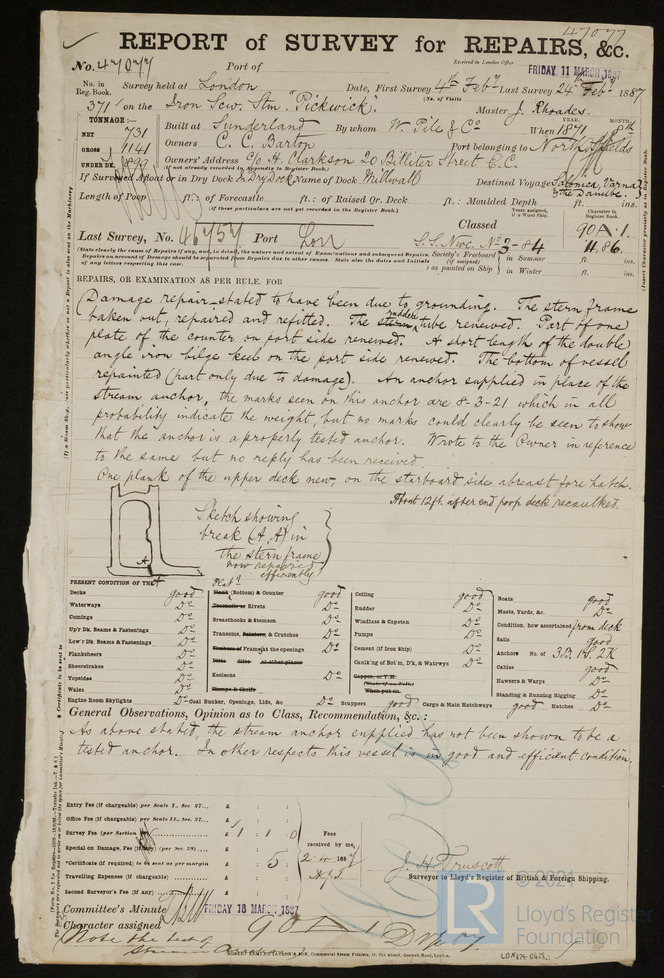 47077
REPORT of SURVEY for REPAIRS, &c.
Received in London Office
No. 47077 Port of FRIDAY, 11 MARCH 1887
No. in Reg. Book. Survey held at London Date, First Survey 4th Feby Last Survey 24th Feby 1887
(No. of Visits
371 on the Iron Scw. Stm. "Pickwick" Master J. Rhoades
TONNAGE:—
NET 731 Built at Sunderland By whom W. Pile & Co When 1871 MONTH 8th
GROSS 1141 Owners C. C. Barton Port belonging to North Shields
UNDER DK. 899 Owners' Address C/o H. Clarkson 20 Billiter Street E.C.
(If not already recorded in Appendix to Register Book.)
If Surveyed Afloat or in Dry Dock In Dry Dock Name of Dock Millwall Destined Voyage Salonica, Varna & the Danube.
Length of Poop ft.: of Forecastle ft.: of Raised Qr. Deck ft.: Moulded Depth ft. ins.
(If these particulars are not yet recorded in the Register Book.)
Last Survey, No. 46757 Port Lon Classed 90A.1.
S.S. Nwc. No 3-84 11,86.
Society's Freeboard (if assigned) as painted on Ship in Summer ft. ins.
in Winter ft. ins.
REPAIRS, OR EXAMINATION AS PER RULE. FOR
Damage repair stated to have been due to grounding. The stern frame
taken out, repaired and refitted. The stern rudder tube renewed. Part of one
plate of the counter on port side renewed. A short length of the double
angle iron bilge keel on the port side renewed. The bottom of vessel
repainted (part only due to damage). An anchor supplied in place of the
stream anchor, the marks seen on this anchor are 8-3-21 which in all
probability indicate the weight, but no marks could clearly be seen to show
that the anchor is a properly tested anchor. Wrote to the Owner in reference
to the same but no reply has been received.
One plank of the upper deck new, on the starboard side abreast fore hatch.
About 12ft. after end poop deck recaulked.
Sketch showing
break (A,A) in
the stern frame
now repaired
efficiently.
A
A
PRESENT CONDITION OF THE
Decks good
Waterways Do
Comings Do
Up'r Dk. Beams & Fastenings Do
Low'r Dk. Beams & Fastenings Do
Planksheers Do
Sheerstrakes Do
Topsides Do
Wales Do
Engine Room Skylights Do
Plank (Bottom) & Counter good
Treenails or Rivets Do
Breasthooks & Stemson Do
Transoms, Pointers, & Crutches Do
Timbers of Frame at the openings Do
Ditto ditto at other places
Keelsons Do
Clamps & Shelfs
Coal Bunker, Openings, Lids, &c. Do
Ceiling good
Rudder Do
Windlass & Capstan Do
Pumps Do
Cement (if Iron Ship) Do
Caulk'ng of Bot'm, D'k, & Watrwys Do
Copper, or Y.M.
When put on
Scuppers good Cargo & Main Hatchways good Hatches Do
Boats good
Masts, Yards, &c. Do
Condition, how ascertained from deck
Sails good
Anchors No. of 3B. 1S. 2K
Cables good
Hawsers & Warps Do
Standing & Running Rigging Do
General Observations, Opinion as to Class, Recommendation, &c.:
As above stated, the stream anchor supplied has not been shown to be a
tested anchor. In other respects this vessel is in good and efficient condition.
Entry Fee (if chargeable) per Scale I., Sec. 27... £ : :
Office Fee (if chargeable) per Scale II., Sec. 27... £ : :
Survey Fee (per Section £ 1 : 1 : 0
Special on Damage, Fee (if any) (per Sec. 28)... £ : :
Certificate (if required) to be sent as per margin £ : 5 :
Travelling Expenses (if chargeable) £ : :
Second Surveyor's Fee (if any) £ : :
Fees received by me,
J. H. Truscott
Surveyor to Lloyd's Register of British & Foreign Shipping.
Committee's Minute FRIDAY 18 MARCH 1887
Character assigned 90 A 1
© 2021
LR
Lloyd's Register
Foundation